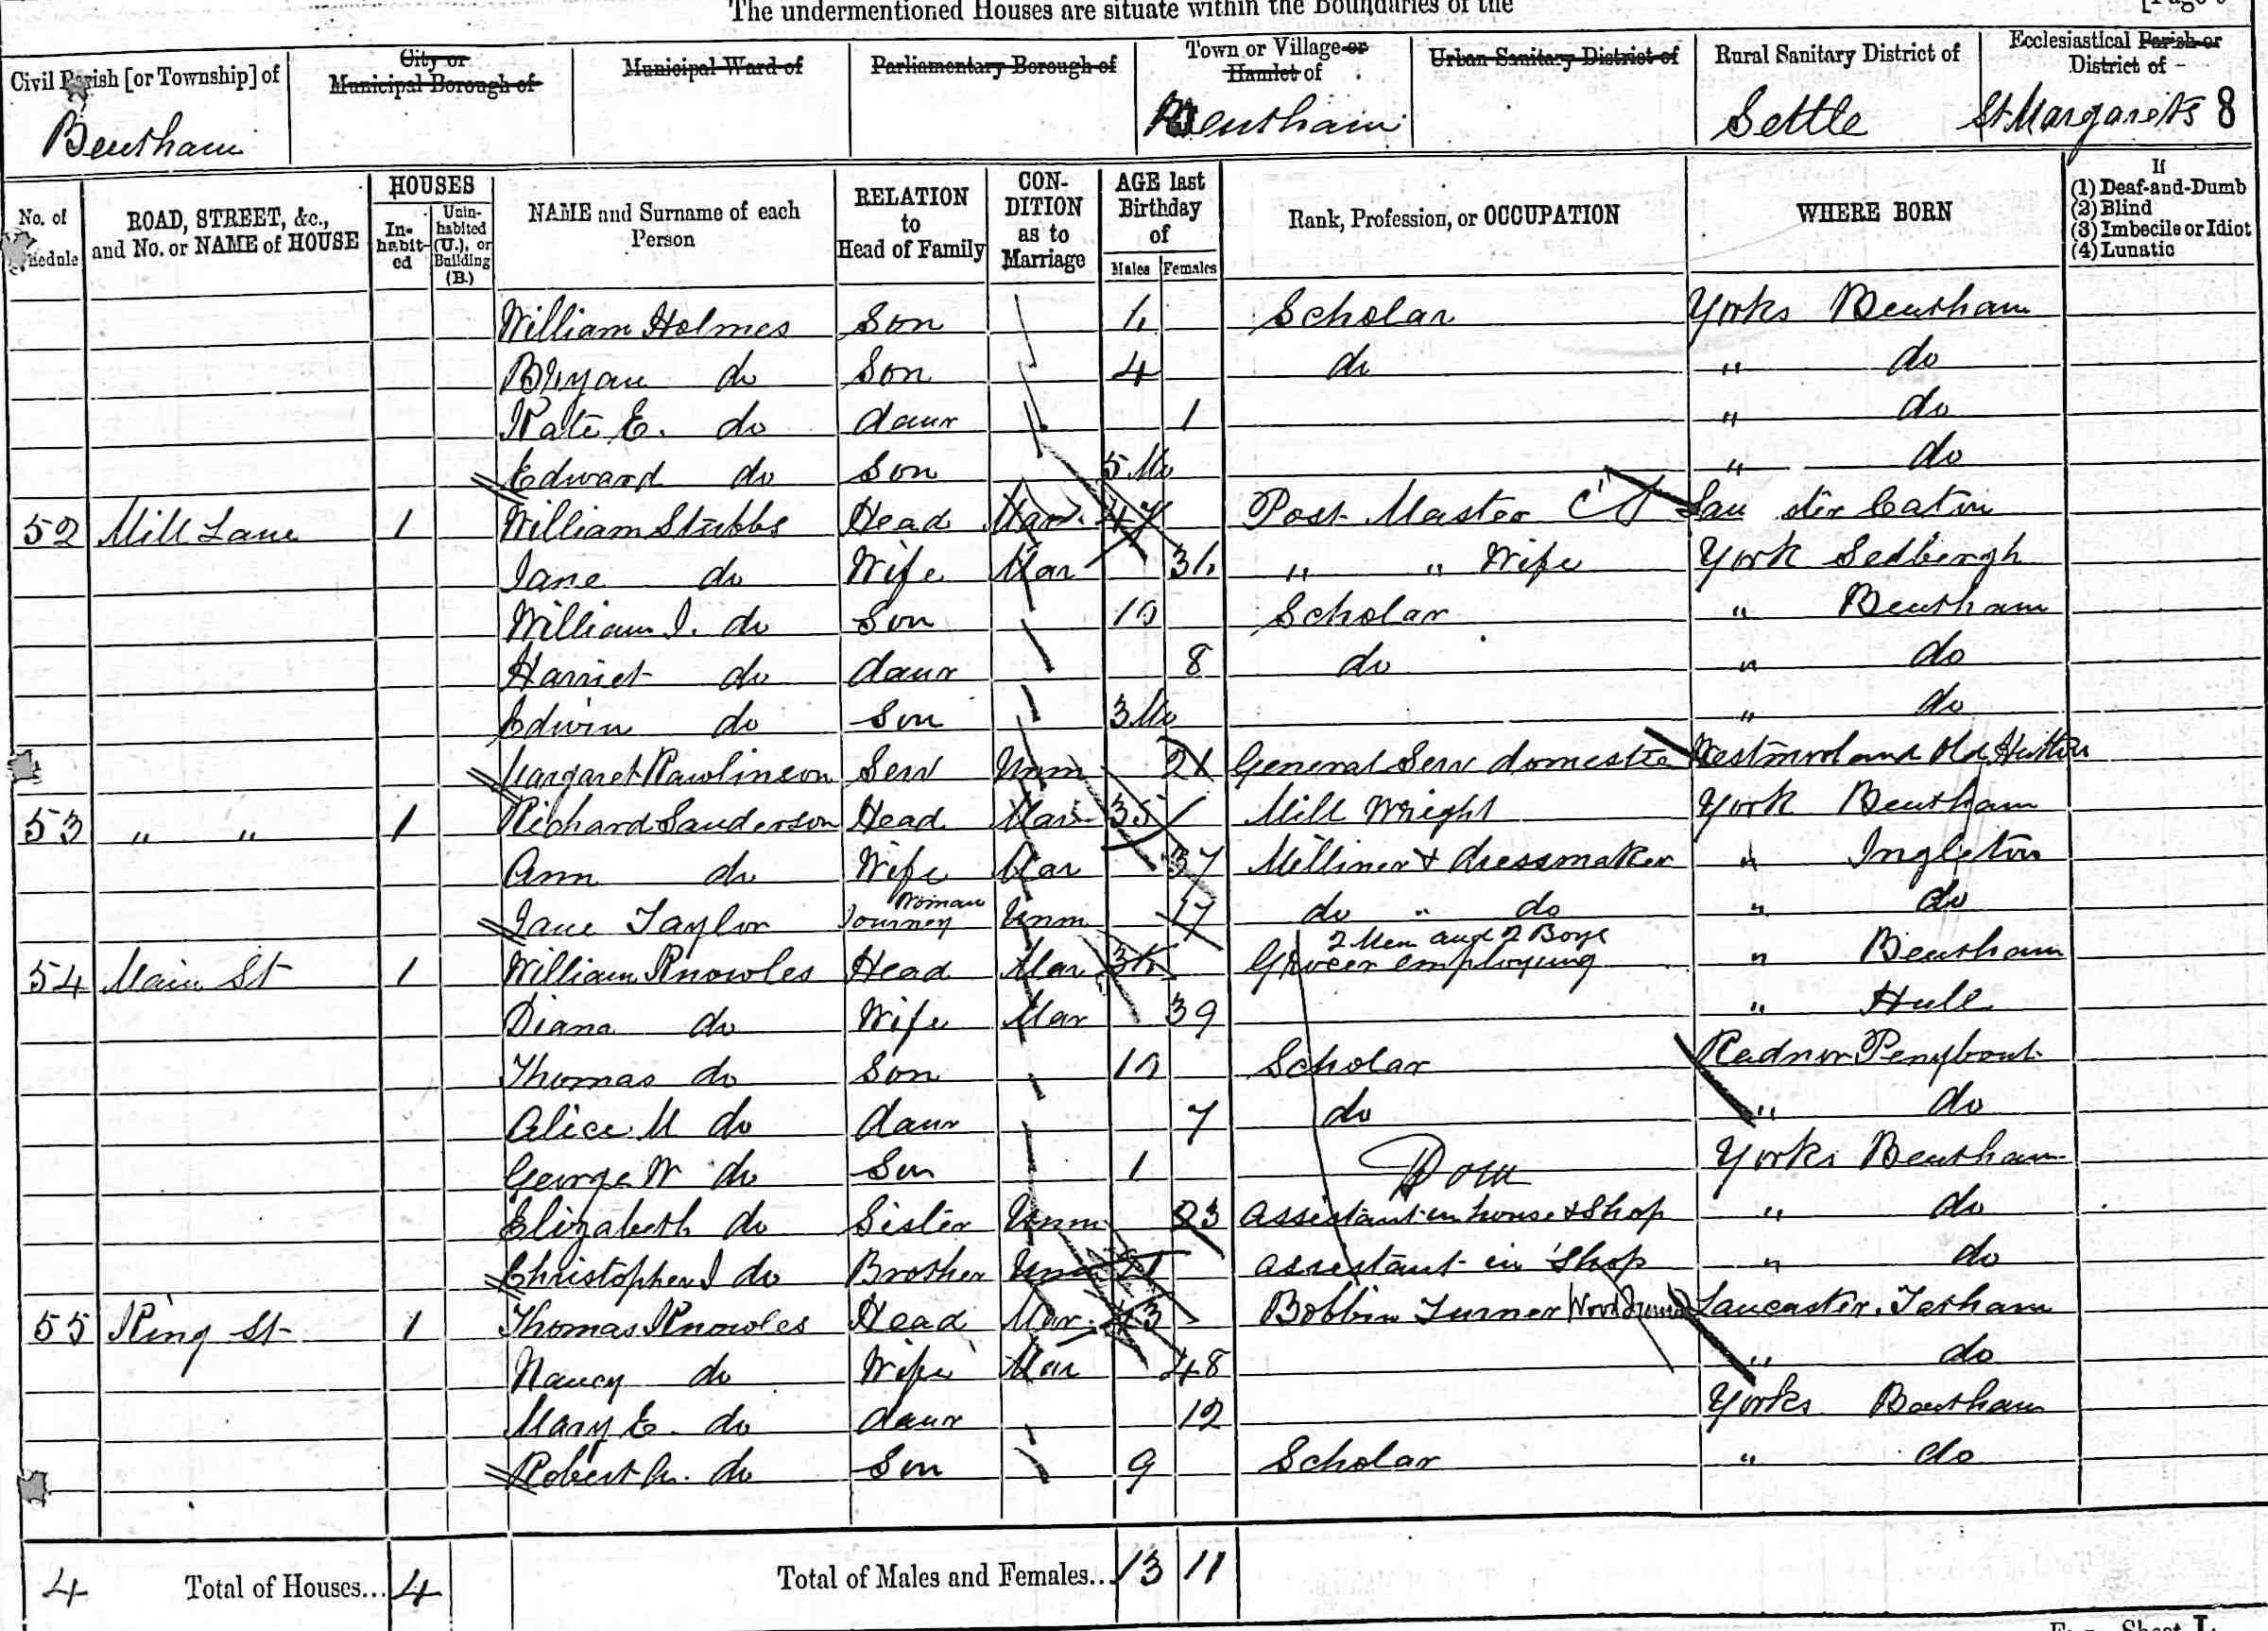 The undermentioned Houses are situate within the Boundaries of the
Civil Parish [or Township] of
City or Municipal Borough of
Municipal Ward of
Parliamentary Borough of
Town or Village or Hamlet of
Urban Sanitary District of
Rural Sanitary District of
Ecclesiastical Parish or District of
Bentham
Bentham
Settle
St Margarets 8
No. of Schedule
ROAD, STREET, &c., and No. or NAME of HOUSE
HOUSES
Inhabited
Uninhabited (U.), or Building (B.)
NAME and Surname of each Person
RELATION to Head of Family
CONDITION as to Marriage
AGE last Birthday of
Males Females
Rank, Profession, or OCCUPATION
WHERE BORN
If
(1) Deaf-and-Dumb
(2) Blind
(3) Imbecile or Idiot
(4) Lunatic
William Holmes Son Scholar Yorks Bentham
Bryan do Son 4 do " do
Kate E. do daur 1 " do
Edward do Son 5 Mo " do
52 Mill Lane 1 William Stubbs Head Mar 47 Post Master Caton
Jane do Wife Mar " " Wife York Sedbergh
William J. do Son 10 Scholar " Bentham
Harriet do daur 8 do " do
Edwin do Son 3 Mo " do
Margaret Rawlinson Serv Unm 21 General Serv domestic Westmorland Old Hutton
53 " " 1 Richard Sanderson Head Mar 35 Mill Wright York Bentham
Ann do Wife Mar 37 Milliner & dressmaker " Ingleton
Jane Taylor Journey Woman Unm 17 do " do " do
54 Main St 1 William Knowles Head Mar Grocer employing 2 Men and 2 Boys " Bentham
Diana do Wife Mar 39 " Hull
Thomas do Son 10 Scholar Radnor Penybont
Alice M do daur 7 do " do
George W do Son 1 Yorks Bentham
Dom
Elizabeth do Sister Unm 23 Assistant in house & Shop " do
Christopher J do Brother Unm 21 Assistant in Shop " do
55 King St 1 Thomas Knowles Head Mar 43 Bobbin Turner Lancaster. Tatham
Nancy do Wife Mar 48 " do
Mary E. do daur 12 Yorks Bentham
Robert do Son 9 Scholar " do
4 Total of Houses... 4 Total of Males and Females... 13 11